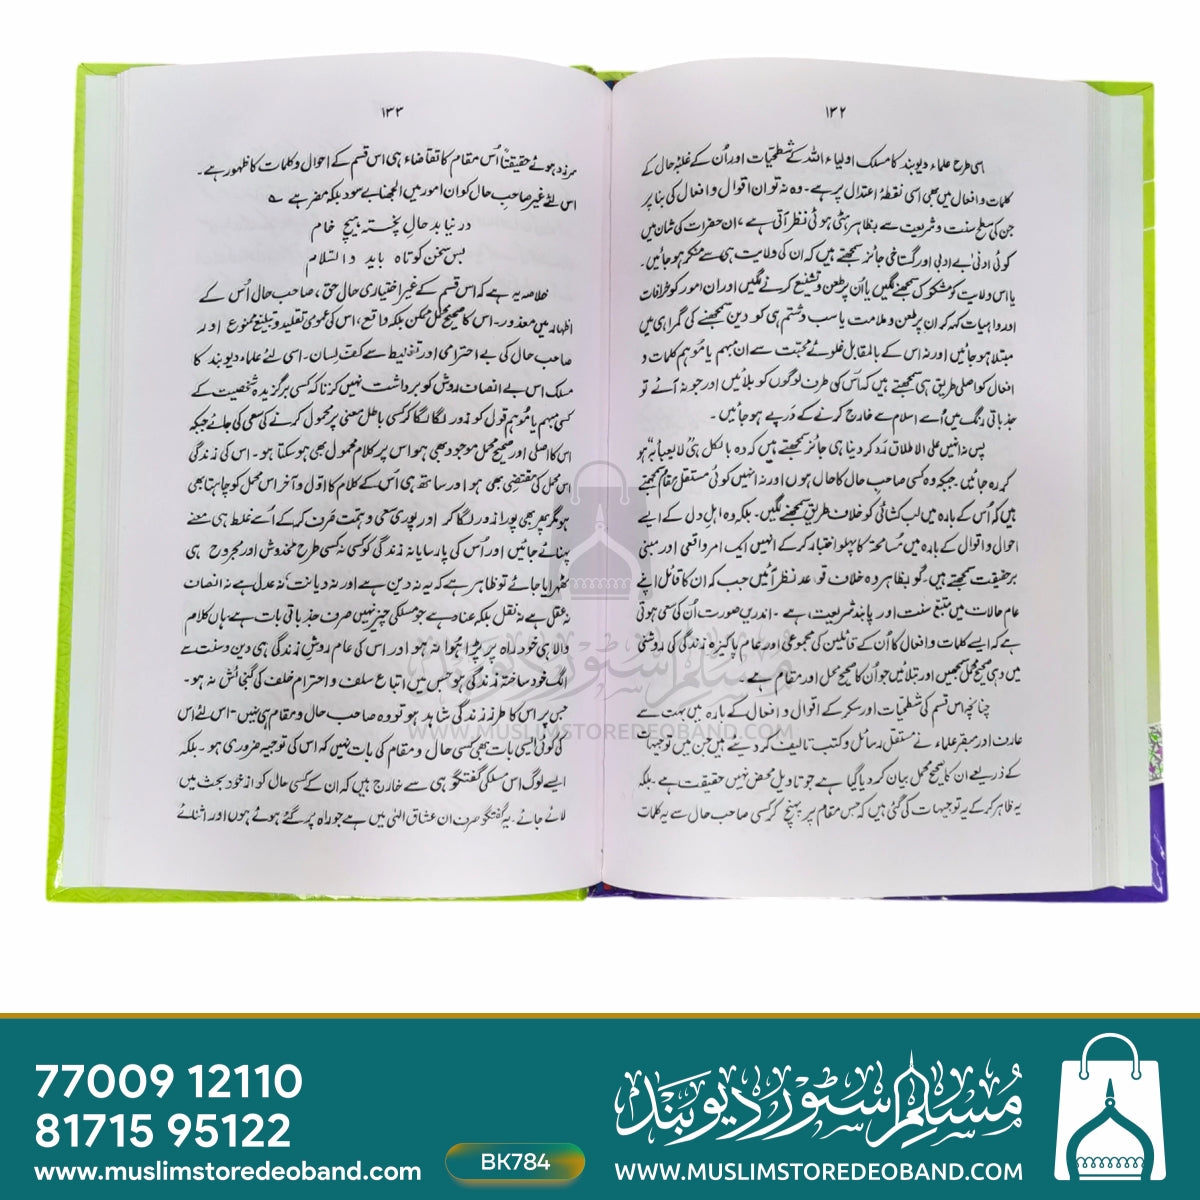 ۱۳۲
اسی طرح علماء دیوبند کا مسلک اولیاء اللہ کے شطحیات اور اُن کے غلبۂ حال کے
کلمات و افعال میں بھی اسی نقطۂ اعتدال پر ہے۔ وہ نہ تو ان اقوال و افعال کی بنا پر
جن کی سطح سنت و شریعت سے بظاہر ہٹی ہوئی نظر آتی ہے، ان حضرات کی شان میں
کوئی ادنیٰ بے ادبی اور گستاخی جائز سمجھتے ہیں کہ ان کی ولایت ہی سے منکر ہو جائیں۔
یا اس ولایت کو مشکوک سمجھنے لگیں یا اُن پر طعن و تشنیع کرنے لگیں اور ان امور کو خرافات
اور واہیات کہہ کر ان پر طعن و ملامت یا سب و شتم ہی کو دین سمجھنے کی گمراہی میں
مبتلا ہو جائیں اور نہ اس کے بالمقابل غلوئے محبت سے ان مبہم یا موہم کلمات و
افعال کو اصلی طریق ہی سمجھتے ہیں کہ اُس کی طرف لوگوں کو بلائیں اور جو نہ آئے تو
جذباتی رنگ میں اُسے اسلام سے خارج کرنے کے درپے ہو جائیں۔
پس نہ انہیں علی الاطلاق رَد کر دینا ہی جائز سمجھتے ہیں کہ وہ بالکل ہی لا یعبأ بہ ہو
کر رہ جائیں۔ جبکہ وہ کسی صاحبِ حال کا حال ہوں اور نہ انہیں کوئی مستقل مقام سمجھتے
ہیں کہ اُس کے بارہ میں لب کشائی کو خلافِ طریق سمجھنے لگیں۔ بلکہ وہ اہلِ دل کے ایسے
احوال و اقوال کے بارہ میں مسامحۃ کا پہلو اختیار کر کے انہیں ایک امر واقعی اور مبنی
بر حقیقت سمجھتے ہیں۔ گو بظاہر وہ خلافِ قواعد نظر آئیں جب کہ ان کا قائل اپنے
عام حالات میں متبعِ سنت اور پابندِ شریعت ہے۔ اندریں صورت اُن کی سعی ہوتی
ہے کہ ایسے کلمات و افعال کا اُن کے قائلین کی مجموعی اور عام پاکیزہ زندگی کی روشنی
میں وہی صحیح محمل سمجھیں اور بتلائیں جو اُن کا صحیح محل اور مقام ہے۔
چنانچہ اس قسم کی شطحیات اور سکر کے اقوال و افعال کے بارہ میں بہت سے
عارف اور مبصر علماء نے مستقل رسائل و کتب تالیف کر دیئے ہیں جن میں توجیہات
کے ذریعے ان کا صحیح محمل بیان کر دیا گیا ہے جو تاویل محض نہیں حقیقت ہے۔ بلکہ
یہ ظاہر کر کے یہ توجیہات کی گئی ہیں کہ جس مقام پر پہنچ کر کسی صاحب حال سے یہ کلمات
۱۳۳
سرزد ہوئے حقیقتاً اُس مقام کا تقاضاء ہی اس قسم کے احوال و کلمات کا ظہور ہے۔
اس لئے غیر صاحب حال کو ان امور میں الجھنا بے سود بلکہ مضر ہے ؎
در نیابد حالِ پختہ ہیچ خام
بس سخن کوتاہ باید والسّلام
خلاصہ یہ ہے کہ اس قسم کے غیر اختیاری حال حق، صاحب حال اُس کے
اظہار میں معذور۔ اس کا صحیح محمل ممکن بلکہ واقع، اس کی عمومی تقلید و تبلیغ ممنوع اور
صاحب حال کی بے احترامی اور تغلیط سے کفِّ لسان۔ اسی لئے علماء دیوبند کا
مسلک اس بے انصاف روش کو برداشت نہیں کرتا کہ کسی برگزیدہ شخصیت کے
کسی مبہم یا موہم قول کو زور لگا لگا کر کسی باطل معنی پر محمول کرنے کی سعی کی جائے جبکہ
اس کا اصلی اور صحیح محمل موجود بھی ہو اس پر کلام محمول بھی ہو سکتا ہو۔ اس کی زندگی
اس محمل کی مقتضی بھی ہو اور ساتھ ہی اُس کے کلام کا اول و آخر اس محمل کو چاہتا بھی
ہو مگر پھر بھی پورا زور لگا کر اور پوری سعی و ہمت صَرف کر کے اُسے غلط ہی معنے
پہنائے جائیں اور اُس کی پارسایانہ زندگی کو کسی نہ کسی طرح مخدوش اور مجروح ہی
ٹھہرایا جائے تو ظاہر ہے کہ یہ نہ دین ہے اور نہ دیانت، نہ عدل ہے نہ انصاف
نہ عقل ہے نہ نقل بلکہ عناد ہے جو مسلکی چیز نہیں صرف جذباتی بات ہے ہاں کلام
والا ہی خود راہ پر پڑا ہُوا نہ ہو اور اس کی عام روش زندگی ہی دین و سنت سے
الگ خود ساختہ زندگی ہو جس میں اتباعِ سلف و احترامِ خلف کی گنجائش نہ ہو۔
جس پر اس کا طرز زندگی شاہد ہو تو وہ صاحب حال و مقام ہی نہیں۔ اس لئے اس
کی کوئی ایسی بات بھی کسی حال و مقام کی بات نہیں کہ اس کی توجیہ ضروری ہو۔ بلکہ
ایسے لوگ اس مسلکی گفتگو ہی سے خارج ہیں کہ ان کے کسی حال کو از خود بحث میں
لائے جائے۔ یہ گفتگو صرف ان عشاق الٰہی میں ہے جو راہ پر لگے ہوئے ہوں اور اثنائے
مسلم سٹور دیوبند
WWW.MUSLIMSTOREDEOBAND.COM
77009 12110
81715 95122
www.muslimstoredeoband.com
BK784
مسلم سٹور دیوبند
WWW.MUSLIMSTOREDEOBAND.COM